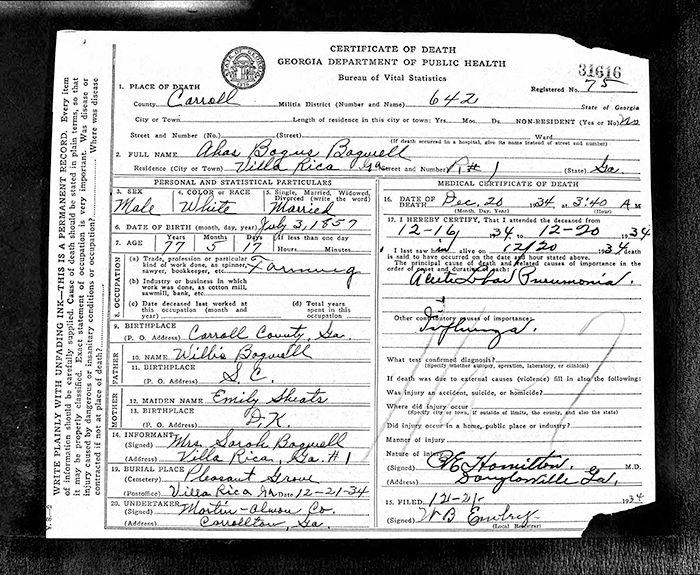 CERTIFICATE OF DEATH
GEORGIA DEPARTMENT OF PUBLIC HEALTH
Bureau of Vital Statistics
31616
Registered No. 75
1. PLACE OF DEATH
County Carroll Militia District (Number and Name) 642 State of Georgia
City or Town Length of residence in this city or town: Yrs. Mos. Ds. NON-RESIDENT (Yes or No)
Street and Number (No.) (Street) Ward
(If death occurred in a hospital, give its name instead of street and number)
2. FULL NAME Ahas Bogus Bagwell
Residence (City or Town) Villa Rica Ga Street and Number) R# 1 (State) Ga.
PERSONAL AND STATISTICAL PARTICULARS
3. SEX 4. COLOR or RACE 5. Single, Married, Widowed, Divorced (write the word)
Male White Married
6. DATE OF BIRTH (month, day, year) July 3, 1857
7. AGE Years Months Days If less than one day
77 5 17 Hours Minutes
8. OCCUPATION
(a) Trade, profession or particular kind of work done, as spinner, sawyer, bookkeeper, etc. Farming
(b) Industry or business in which work was done, as cotton mill, sawmill, bank, etc.
(c) Date deceased last worked at this occupation (month and year)
(d) Total years spent in this occupation
9. BIRTHPLACE
(P. O. Address) Carroll County, Ga.
FATHER
10. NAME Willis Bagwell
11. BIRTHPLACE
(P. O. Address) S. C.
MOTHER
12. MAIDEN NAME Emily Sheats
13. BIRTHPLACE
(P. O. Address) D. K.
14. INFORMANT
(Signed) Mrs. Sarah Bagwell
(Address) Villa Rica, Ga. #1
19. BURIAL PLACE
(Cemetery) Pleasant Grove
(Postoffice) Villa Rica Ga Date 12-21-34
20. UNDERTAKER
(Signed) Martin-Almon Co.
(Address) Carrollton, Ga.
MEDICAL CERTIFICATE OF DEATH
16. DATE OF DEATH Dec. 20 1934 at 3:40 A M
(Month, Day, Year) (Hour)
17. I HEREBY CERTIFY, That I attended the deceased from
12-16, 1934 to 12-20 1934
I last saw him alive on 12/20 1934 death
is said to have occurred on the date and hour stated above.
The principal cause of death and related causes of importance in order of onset and duration of each:
Acute Lobar Pneumonia.
Other contributory causes of importance:
Influenza.
What test confirmed diagnosis?
(Specify whether autopsy, operation, laboratory, or clinical)
If death was due to external causes (violence) fill in also the following:
Was injury an accident, suicide, or homicide?
Where did injury occur
(Specify city or town, if outside of limits, the county, and also the state)
Did injury occur in a home, public place or industry?
Manner of injury
Nature of injury
(Signed) Hamilton. M.D.
(Address) Douglasville Ga.
15. FILED 12-21- 1934
(Signed) W B Embry
(Local Registrar)
WRITE PLAINLY WITH UNFADING INK—THIS IS A PERMANENT RECORD. Every item
of information should be carefully supplied. Cause of death should be stated in plain terms, so that
it may be properly classified. Exact statement of occupation is very important. Was disease or
injury caused by dangerous or insanitary conditions or occupation? Where was disease
contracted if not at place of death?
V. S.—2